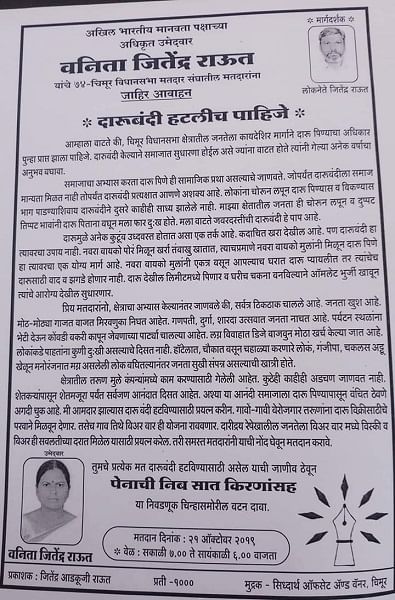 अखिल भारतीय मानवता पक्षाच्या
अधिकृत उमेदवार
वनिता जितेंद्र राऊत
यांचे ७४-चिमूर विधानसभा मतदार संघातील मतदारांना
जाहिर आवाहन
* मार्गदर्शक *
लोकनेते जितेंद्र राऊत
* दारूबंदी हटलीच पाहिजे *
आम्हाला वाटते की, चिमूर विधानसभा क्षेत्रातील जनतेला कायदेशिर मार्गाने दारू पिण्याचा अधिकार
पुन्हा प्राप्त झाला पाहिजे. दारूबंदी केल्याने समाजात सुधारणा होईल असे ज्यांना वाटत होते त्यांनी गेल्या अनेक वर्षाचा
अनुभव बघावा.
समाजाचा अभ्यास करता दारू पिणे ही सामाजिक प्रथा असल्याचे जाणवते. जोपर्यंत दारूबंदीला समाज
मान्यता मिळत नाही तोपर्यंत दारूबंदी प्रत्यक्षात आणणे अशक्य आहे. लोकांना चोरून लपून दारू पिण्यास व विकण्यास
भाग पाडण्याशिवाय दारूबंदीने दुसरे काहीही साध्य झालेले नाही. माझ्या क्षेत्रातील जनता ही चोरून लपून व दुप्पट
तिप्पट भावांनी दारू पिताना बघून मला फार दुःख होते. मला वाटते जबरदस्तीची दारूबंदी हे पाप आहे.
दारूमुळे अनेक कुटूंब उध्दवस्त होतात असा एक तर्क आहे. कदाचित खरा देखील आहे. पण दारूबंदी हा
त्यावरचा उपाय नाही. नवरा बायको पोरं मिळून खर्रा तंबाखु खातात, त्याचप्रमाणे नवरा बायको मुलांनी मिळून दारू पिणे
हा त्यावरचा एक योग्य मार्ग आहे. नवरा बायको मुलांनी एकत्र बसून आपल्याच घरात दारू प्यायलीत तर त्यांचेच
दारूसाठी वाद व झगडे होणार नाही. दारू देखील लिमीटमध्ये पिणार व घरीच चकना बनविल्याने ऑमलेट भुर्जी खावून
त्यांचे आरोग्य देखील सुधारणार.
प्रिय मतदारांनो, क्षेत्राचा अभ्यास केल्यानंतर जाणवले की, सर्वत्र ठिकठाक चालले आहे. जनता खुश आहे.
मोठ-मोठ्या गाजत वाजत मिरवणुका निघत आहेत. गणपती, दुर्गा, शारदा उत्सवात जनता नाचत आहे. पर्यटन स्थळांना
भेटी देऊन कोंबडी वकरी कापून जेवणाच्या पार्टर्या चालल्या आहेत. लग्न विवाहात डिजे वाजवून मोठा खर्च केला जात आहे.
लोकांकडे पाहतांना कुणी दुःखी असल्याचे दिसत नाही. हॉटेलात, चौकात बसून चहाळ्या करणारे लोक, गंजीपा, चकलस अडू
खेळून मनोरंजनात मग्न असलेली लोक बघितल्यानंतर जनता सुखी संपन्न असल्याची खात्री होते.
क्षेत्रातील तरूण मुले कंपन्यांमध्ये काम करण्यासाठी गेलेली आहेत. कुठेही काहीही अडचण जाणवत नाही.
शेतकऱ्यांपासून शेतमजूरा पर्यंत सर्वजण आनंदात दिसत आहेत. अश्या या आनंदी समाजाला दारू पिण्यापासून वंचित ठेवणे
अगदी चुक आहे. मी आमदार झाल्यास दारू बंदी हटविण्यासाठी प्रयत्न करीन. गावो-गावी बेरोजगार तरूणांना दारू विक्रीसाठीचे
परवाने मिळवून देणार. तसेच गाव तिथे बिअर बार ही योजना राववणार. दारीद्रय रेषेखालील जनतेला बिअर बार मध्ये विस्की व
बिअर ही सवलतीच्या दरात मिळेल यासाठी प्रयत्न करेल. तरी समस्त मतदारांनी याची नोंद घेवून मतदान करावे.
उमेदवार
वनिता जितेंद्र राऊत
तुमचे प्रत्येक मत दारूबंदी हटविण्यासाठी असेल याची जाणीव ठेवून
पेनाची निब सात किरणांसह
या निवडणूक चिन्हासमोरील बटन दावा.
मतदान दिनांक : २१ ऑक्टोबर २०१९
* वेळ : सकाळी ७.०० ते सायंकाळी ६.०० वाजता
प्रकाशक : जितेंद्र आडकूजी राऊत
प्रती -१०००
मुद्रक - सिध्दार्थ ऑफसेट ॲण्ड बॅनर, चिमूर